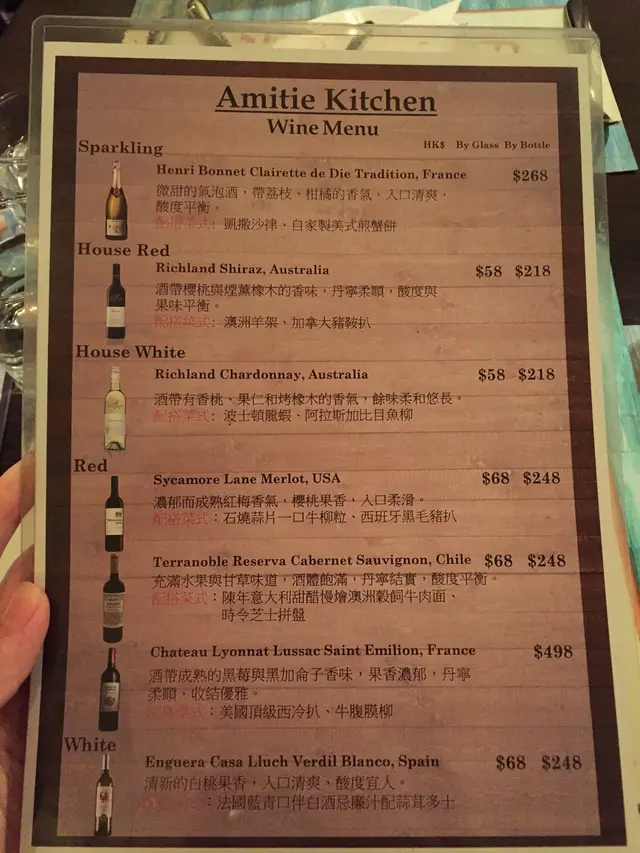 Amitie Kitchen
Wine Menu
Sparkling HK$ By Glass By Bottle
Henri Bonnet Clairette de Die Tradition, France $268
微甜的氣泡酒，帶荔枝、柑橘的香氣，入口清爽，
酸度平衡。
配搭菜式: 凱撒沙律、自家製美式煎蟹餅
House Red
Richland Shiraz, Australia $58 $218
酒帶櫻桃與煙薰橡木的香味，丹寧柔順，酸度與
果味平衡。
配搭菜式: 澳洲羊架、加拿大豬鞍扒
House White
Richland Chardonnay, Australia $58 $218
酒帶有香桃、果仁和烤橡木的香氣，餘味柔和悠長。
配搭菜式: 波士頓龍蝦、阿拉斯加比目魚柳
Red
Sycamore Lane Merlot, USA $68 $248
濃郁而成熟紅梅香氣，櫻桃果香，入口柔滑。
配搭菜式：石燒蒜片一口牛柳粒、西班牙黑毛豬扒
Terranoble Reserva Cabernet Sauvignon, Chile $68 $248
充滿水果與甘草味道，酒體飽滿，丹寧結實，酸度平衡。
配搭菜式：陳年意大利甜醋慢燴澳洲穀飼牛肉面、
時令芝士拼盤
Chateau Lyonnat Lussac Saint Emilion, France $498
酒帶成熟的黑莓與黑加侖子香味，果香濃郁，丹寧
柔順，收結優雅。
配搭菜式：美國頂級西冷扒、牛腹膜柳
White
Enguera Casa Lluch Verdil Blanco, Spain $68 $248
清新的白桃果香，入口清爽、酸度宜人。
：法國藍青口伴白酒忌廉汁配蒜茸多士